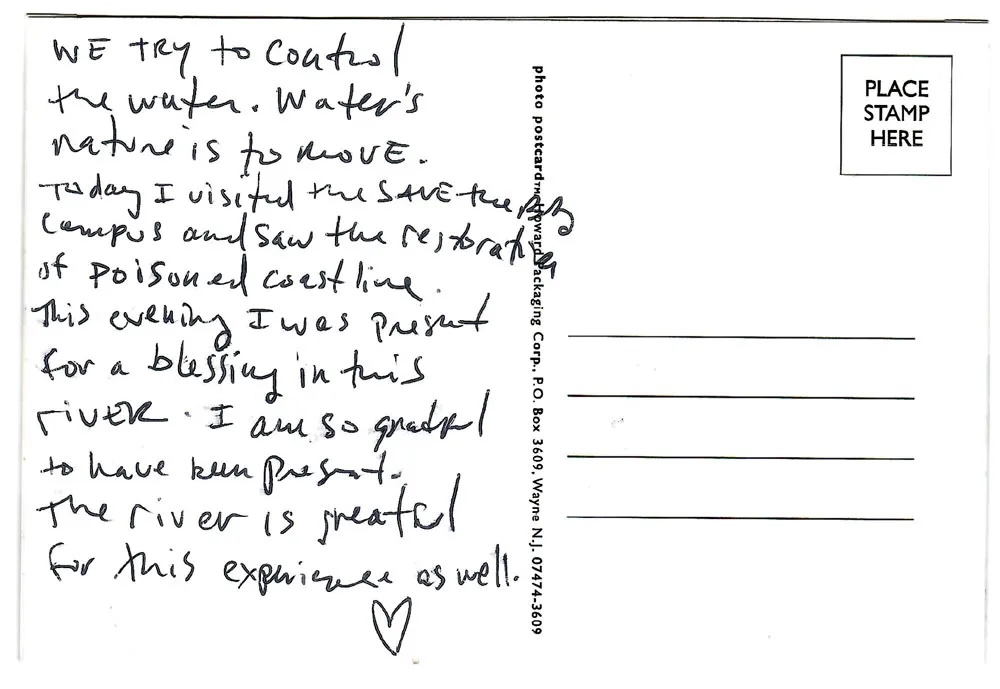 WE TRY to Control
the water. Water's
nature is to move.
Today I visited the SAVE the Bay
Campus and saw the restoration
of poisoned coastline.
This evening I was present
for a blessing in this
rivER. I am so grateful
to have been present.
The river is greatful
for this experience as well.
♡
photo postcard™ Howard Packaging Corp., P.O. Box 3609, Wayne N.J. 07474-3609
PLACE
STAMP
HERE